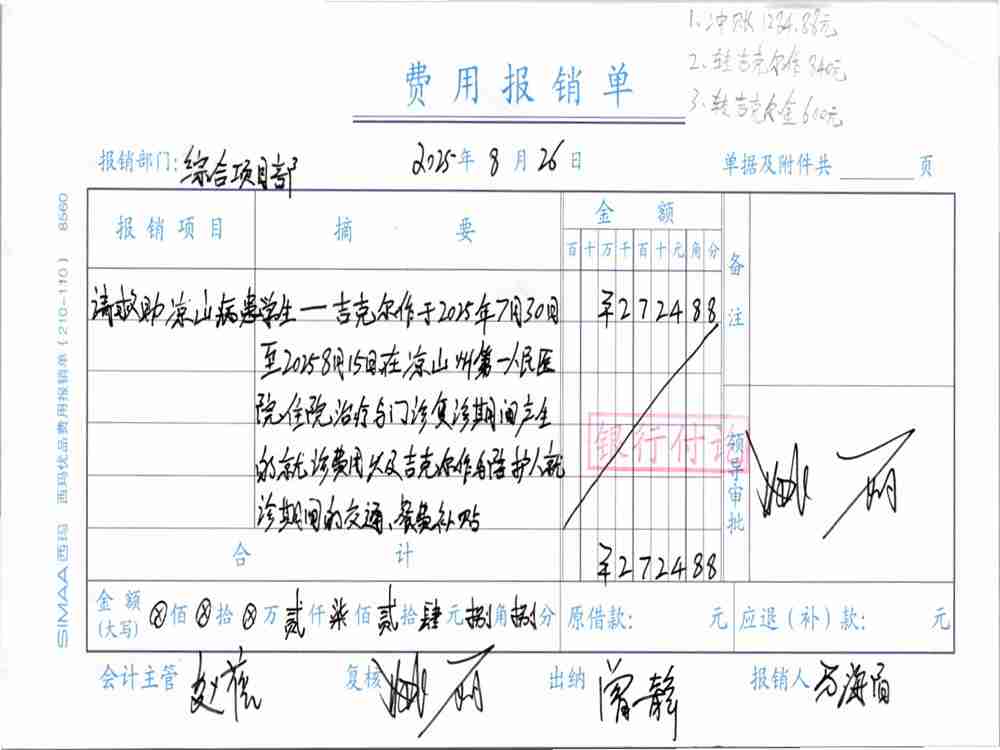 1、冲账1284.88元
2、转吉克尔作840元
3、转吉克尔金600元
费用报销单
报销部门：综合项目部 2025年8月26日 单据及附件共 页
报销项目 摘要 金额 备注
百十万千百十元角分
请救助凉山病患学生一吉克尔作于2025年7月30日 ¥272488
至20258月15日在凉山州第一人民医
院住院治疗与门诊复诊期间产生
的就诊费用以及吉克尔作与陪护人就
诊期间的交通、餐食补贴
银行付讫
领导审批
合计 ¥272488
金额(大写) ⊗佰⊗拾⊗万贰仟柒佰贰拾肆元捌角捌分 原借款： 元 应退（补）款： 元
会计主管 复核 出纳 曾静 报销人
SIMAA西玛 西玛优品费用报销单（210-110） 8560